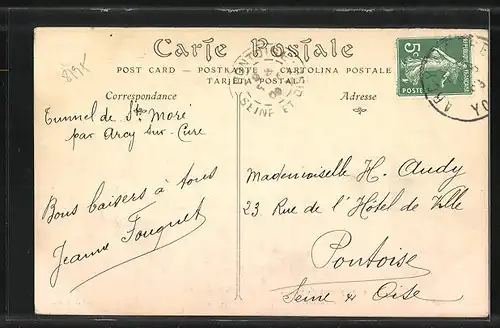 Carte Postale
POST CARD — POSTKARTE — CARTOLINA POSTALE
TARJETA POSTAL
Correspondance
Adresse
5c
POSTES
SEINE ET OISE
Tunnel de St Moré
par Arcy sur Cure
Bons baisers à tous
Jeanne Fouquet
Mademoiselle H. Audy
23 Rue de l'Hôtel de Ville
Pontoise
Seine & Oise